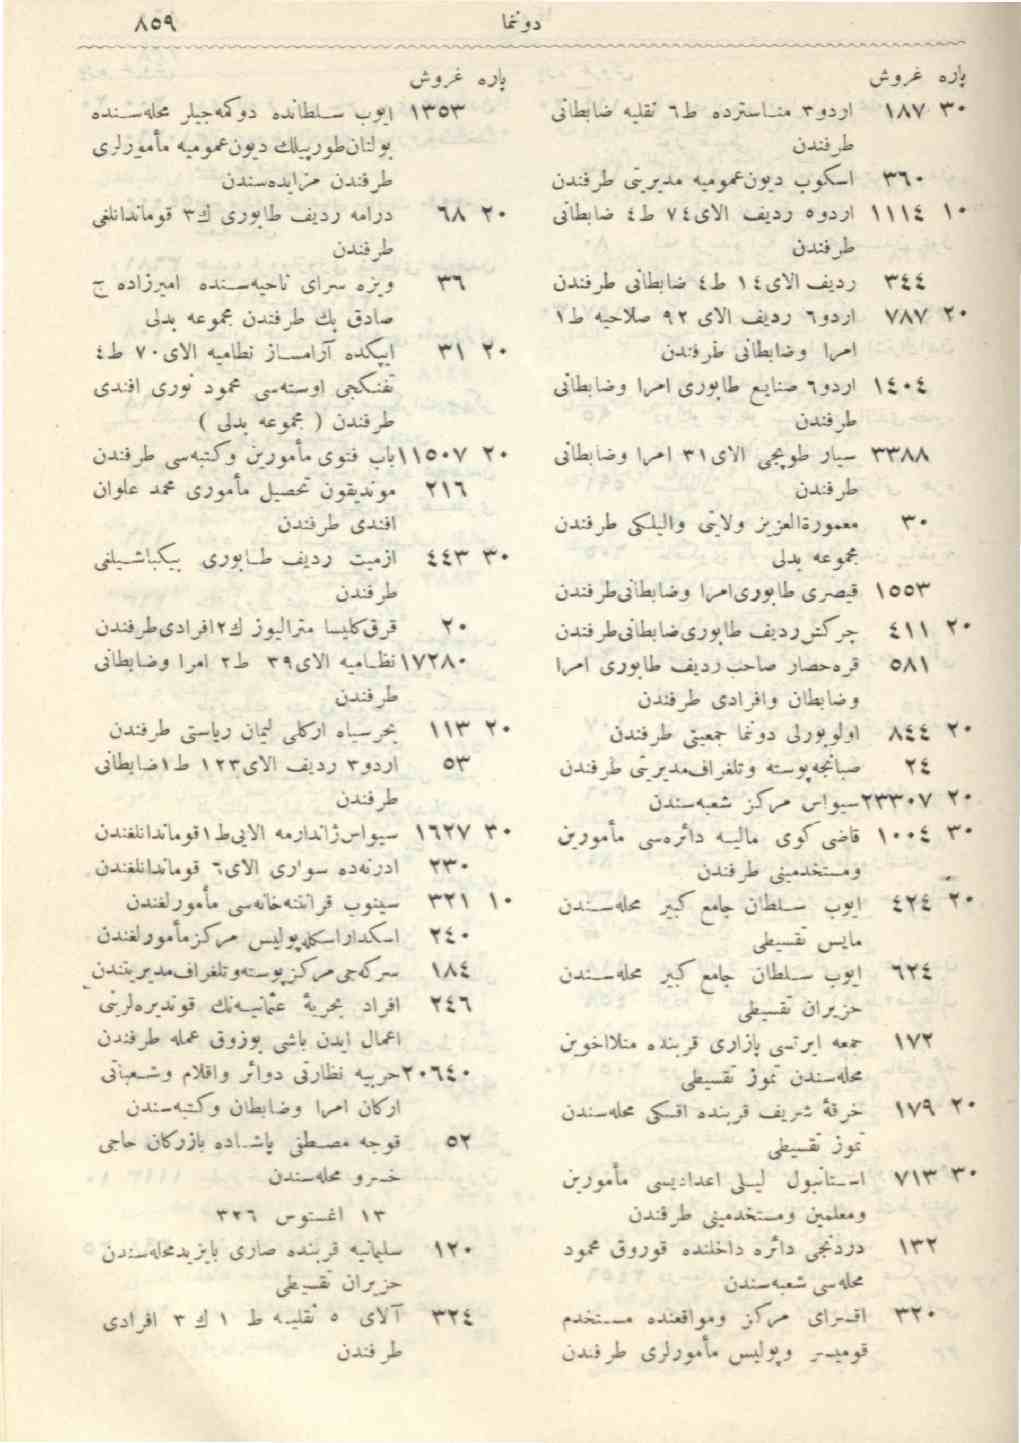 دوننما ٨٥٩
پاره غروش
٣٠ ١٨٧ اردو٣ مناسترده ط٦ نقلیه ضابطانی
طرفندن
٣٦٠ اسکوب دیون‌عمومیه مدیریتی طرفندن
١٠ ١١١٤ اردو٥ ردیف الای٧٤ ط٤ ضابطانی
طرفندن
٣٤٤ ردیف الای١٤ ط٤ ضابطانی طرفندن
٢٠ ٧٨٧ اردو٦ ردیف الای ٩٢ صلاحیه ط١
امرا وضابطانی طرفندن
١٤٠٤ اردو٦ صنایع طابوری امرا وضابطانی
طرفندن
٣٣٨٨ سیار طوپجی الای٣١ امرا وضابطانی
طرفندن
٣٠ معمورةالعزیز ولایتی والیلکی طرفندن
مجموعه بدلی
١٥٥٣ قیصری طابوری‌امرا وضابطانی‌طرفندن
٢٠ ٤١١ چرکش‌ردیف طابوری‌ضابطانی‌طرفندن
٥٨١ قره‌حصار صاحب‌ردیف طابوری امرا
وضابطان وافرادی طرفندن
٢٠ ٨٤٤ اولوبورلی دوننما جمعیتی طرفندن
٢٤ صبانجه‌پوسته وتلغراف‌مدیریتی طرفندن
٢٠ ٢٣٣٠٧ سیواس مرکز شعبه‌سندن
٣٠ ١٠٠٤ قاضی کوی مالیه دائره‌سی مأمورین
ومستخدمینی طرفندن
٢٠ ٤٢٤ ایوب سلطان جامع کبیر محله‌سندن
مایس تقسیطی
٦٢٤ ایوب سلطان جامع کبیر محله‌سندن
حزیران تقسیطی
١٧٢ جمعه ایرتسی پازاری قربنده منلااخوین
محله‌سندن تموز تقسیطی
٢٠ ١٧٩ خرقۀ شریف قربنده اقسکی محله‌سندن
تموز تقسیطی
٣٠ ٧١٣ استانبول لیلی اعدادیسی مأمورین
ومعلمین ومستخدمینی طرفندن
١٣٢ دردنجی دائره داخلنده قوروق محمود
محله‌سی شعبه‌سندن
٣٢٠ اقسرای مرکز ومواقعنده مستخدم
قومیسر وپولیس مأمورلری طرفندن
پاره غروش
١٣٥٣ ایوب سلطانده دوکمه‌جیلر محله‌سنده
بولنان‌طورپیللك دیون‌عمومیه مأمورلری
طرفندن مزایده‌سندن
٢٠ ٦٨ درامه ردیف طابوری ك٣ قوماندانلغی
طرفندن
٣٦ ویزه سرای ناحیه‌سنده امیرزاده ج
صادق بك طرفندن مجموعه بدلی
٢٠ ٣١ ایپکده آرامساز نظامیه الای٧٠ ط٤
تفنکجی اوسته‌سی محمود نوری افندی
طرفندن ( مجموعه بدلی )
٢٠ ١١٥٠٧ باب فتوی مأمورین وکتبه‌سی طرفندن
٢١٦ موندیقون تحصیل مأموری محمد علوان
افندی طرفندن
٣٠ ٤٤٣ ازمیت ردیف طابوری بیکباشیلغی
طرفندن
٢٠ قرق‌کلیسا مترالیوز ك٢ افرادی‌طرفندن
١٧٢٨٠ نظامیه الای٣٩ ط٢ امرا وضابطانی
طرفندن
٢٠ ١١٣ بحرسیاه ارکلی لیمان ریاستی طرفندن
٥٣ اردو٣ ردیف الای١٢٣ ط١ضابطانی
طرفندن
٣٠ ١٦٢٧ سیواس‌ژاندارمه الایی‌ط١قوماندانلغندن
٢٣٠ ادرنه‌ده سواری الای٦ قوماندانلغندن
١٠ ٣٢١ سینوب قرانتنه‌خانه‌سی مأمورلغندن
٢٤٠ اسکداراسکله‌پولیس مرکزمأمورلغندن
١٨٤ سرکه‌جی‌مرکزپوسته‌وتلغراف‌مدیریتندن
٢٤٦ افراد بحریۀ عثمانیه‌نك قوندیره‌لرینی
اعمال ایدن باشی بوزوق عمله طرفندن
٢٠٦٤٠ حربیه نظارتی دوائر واقلام وشعباتی
ارکان امرا وضابطان وکتبه‌سندن
٥٢ قوجه مصطفی پاشاده بازرکان حاجی
خسرو محله‌سندن
١٣ اغستوس ٣٢٦
١٢٠ سلیمانیه قربنده صاری بایزیدمحله‌سندن
حزیران تقسیطی
٣٢٤ آلای ٥ نقلیه ط ١ ك ٣ افرادی
طرفندن